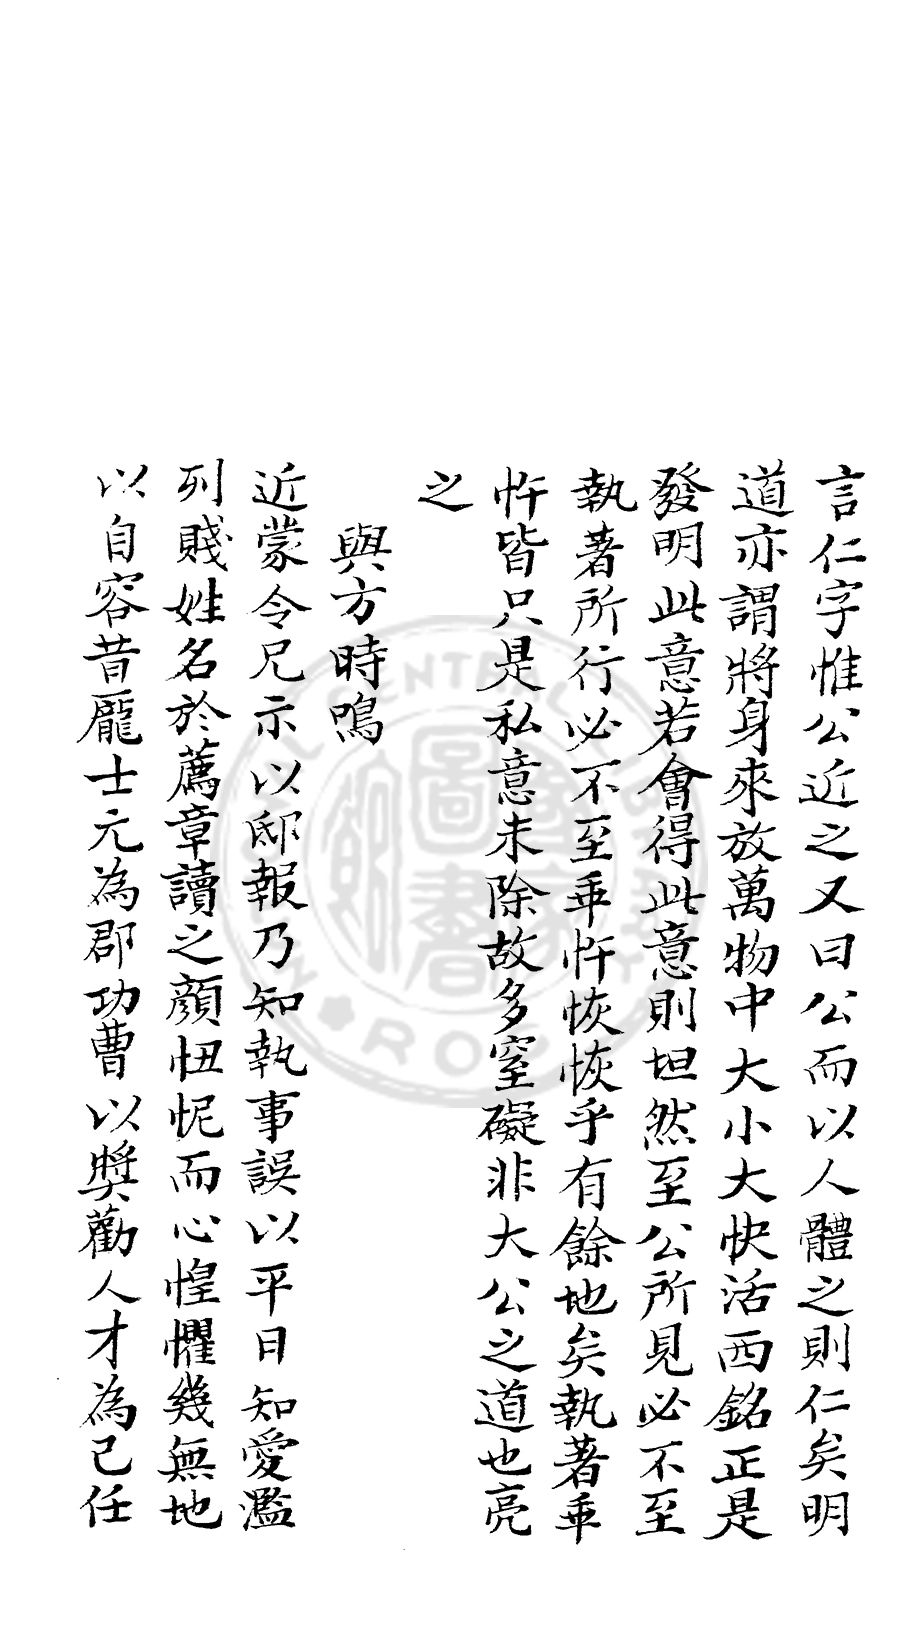 言仁字惟公近之又曰公而以人體之則仁矣明
道亦謂將身來放萬物中大小大快活西銘正是
發明此意若會得此意則坦然至公所見必不至
執著所行必不至乖忤恢恢乎有餘地矣執著乖
忤皆只是私意未除故多窒礙非大公之道也亮
之
與方時鳴
近蒙令兄示以邸報乃知執事誤以平日知愛濫
列賤姓名於薦章讀之顏忸怩而心惶懼幾無地
以自容昔龐士元為郡功曹以獎勸人才為己任
NATIONAL CENTRAL LIBRARY
圖書